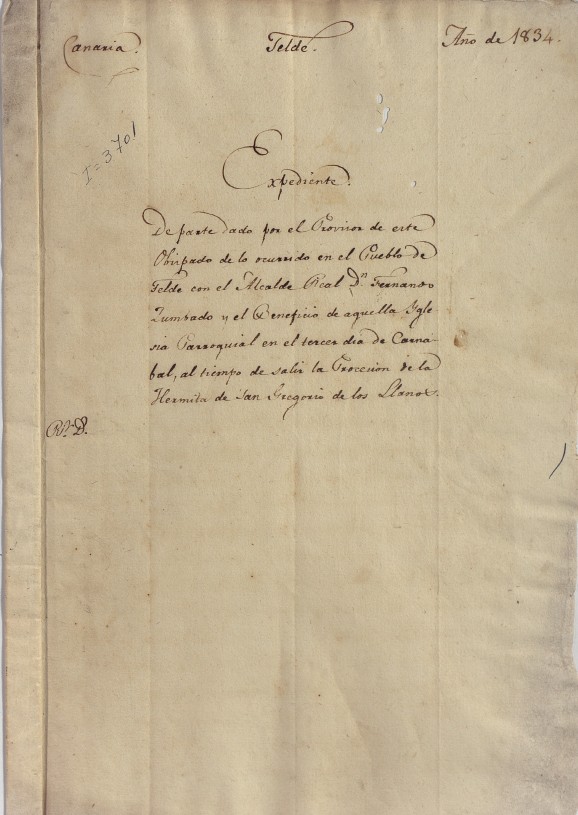 Canaria. Telde. Año de 1834.
I=3701
Expediente.
De parte dado por el Provisor de este
Obispado de lo ocurrido en el Pueblo de
Telde con el Alcalde Real Dn. Fernando
Zumbado y el Beneficio de aquella Ygle
sia Parroquial en el tercer dia de Carna
bal, al tiempo de salir la Procesion de la
Hermita de San Gregorio de los Llanos.